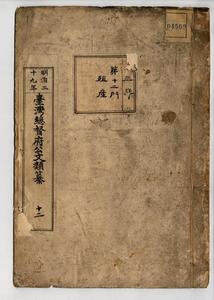 明治二十九年
臺灣總督府公文類纂
十二
第十二門
殖産
04509